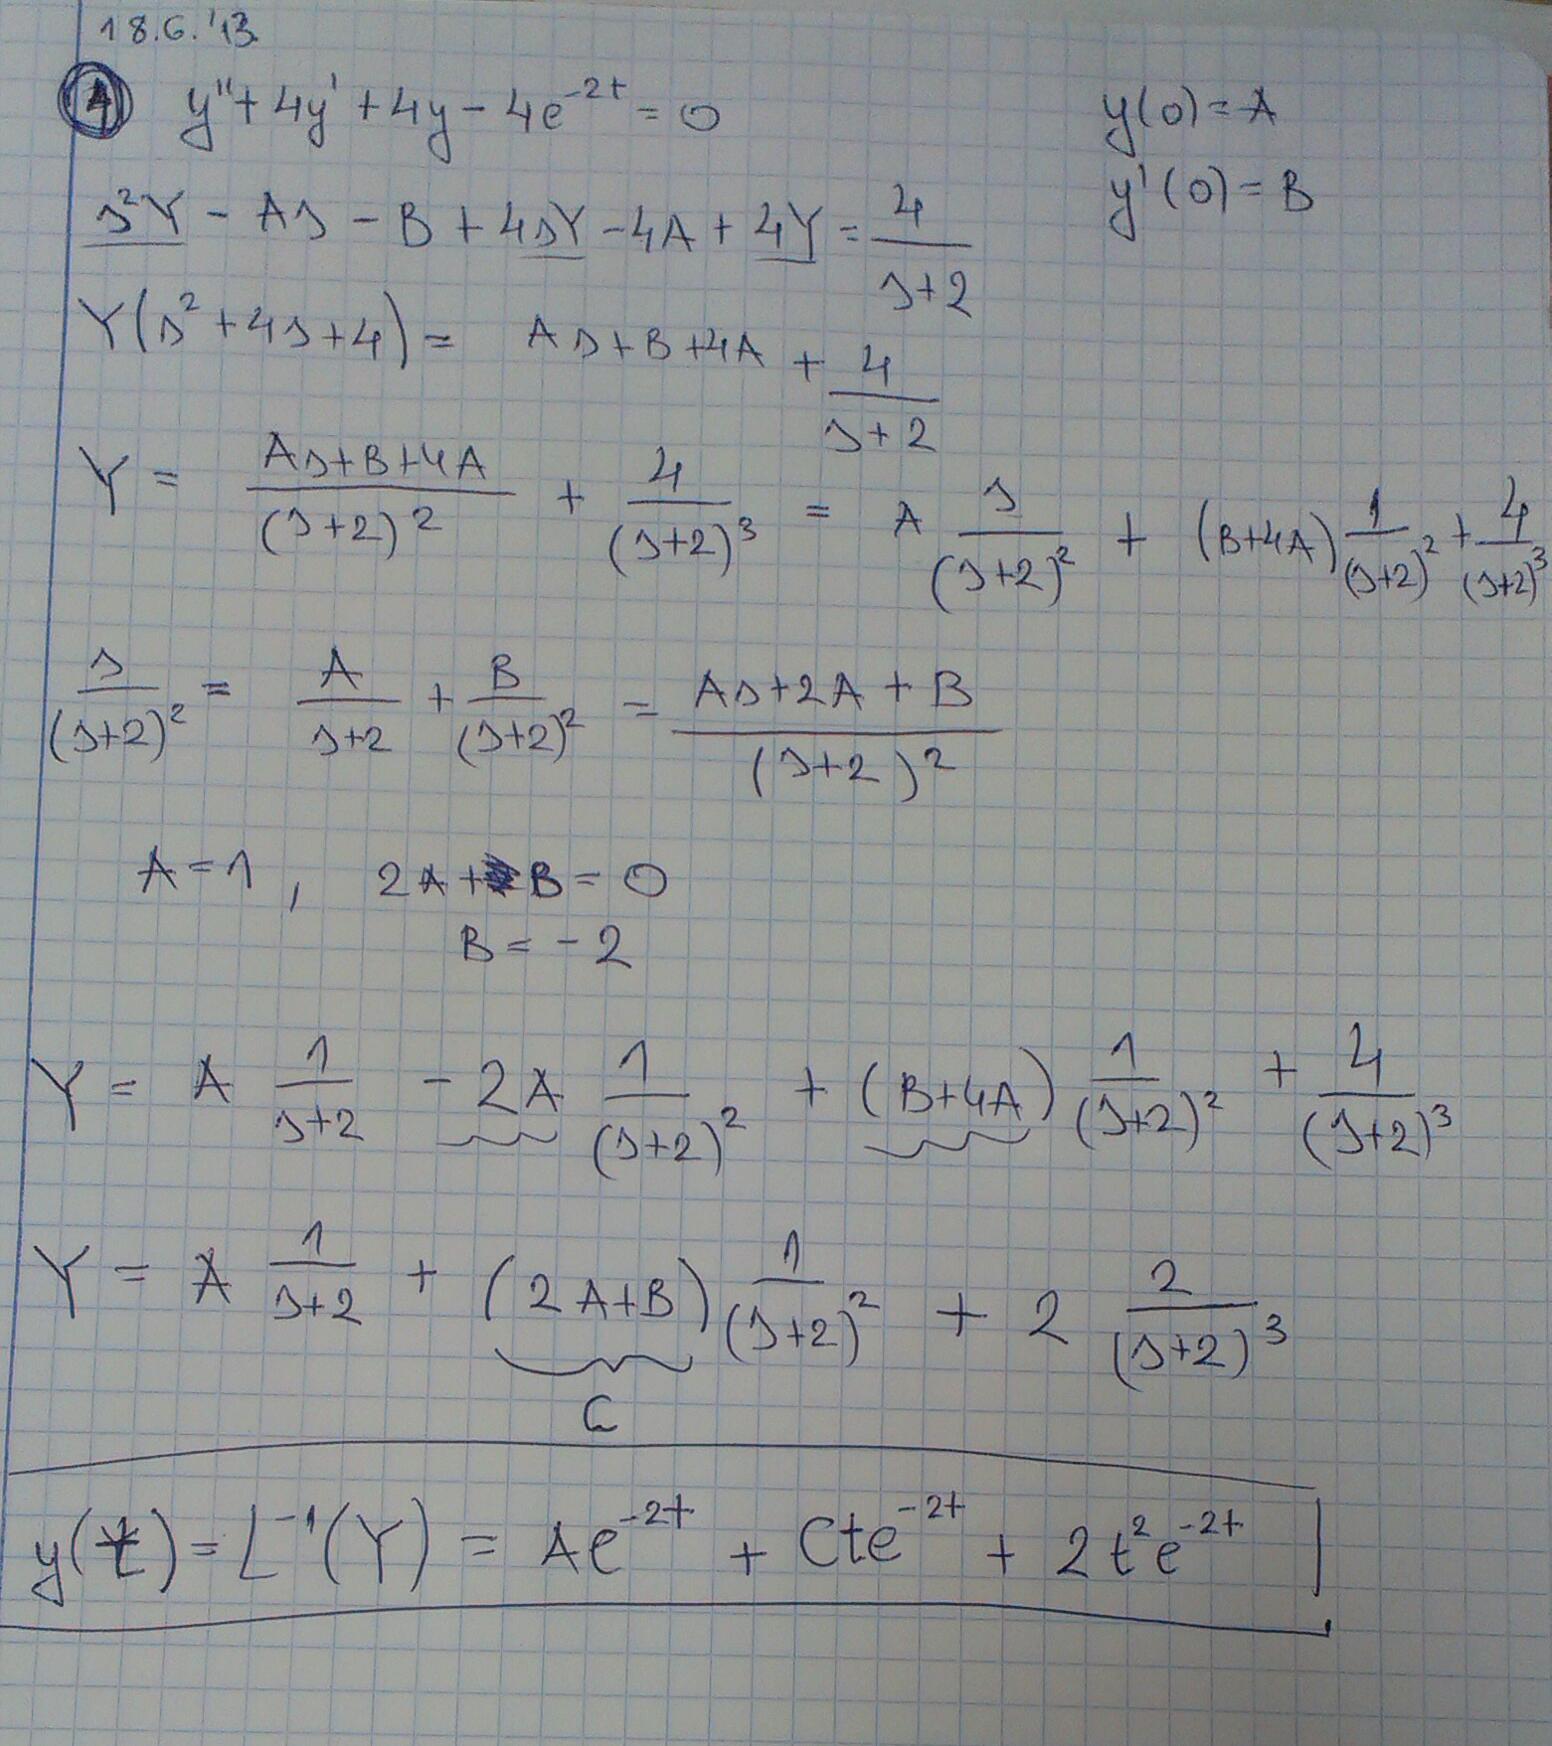 18.6.'13.
1 y'' + 4y' + 4y - 4e^-2t = 0
y(0) = A
y'(0) = B
s²Y - As - B + 4sY - 4A + 4Y = 4/(s+2)
Y(s² + 4s + 4) = As + B + 4A + 4/(s+2)
Y = (As+B+4A)/(s+2)² + 4/(s+2)³ = A s/(s+2)² + (B+4A) 1/(s+2)² + 4/(s+2)³
s/(s+2)² = A/(s+2) + B/(s+2)² = (As+2A+B)/(s+2)²
A = 1, 2A + B = 0
B = -2
Y = A 1/(s+2) - 2A 1/(s+2)² + (B+4A) 1/(s+2)² + 4/(s+2)³
Y = A 1/(s+2) + (2A+B) 1/(s+2)² + 2 2/(s+2)³
C
y(t) = L⁻¹(Y) = Ae^-2t + Cte^-2t + 2t²e^-2t